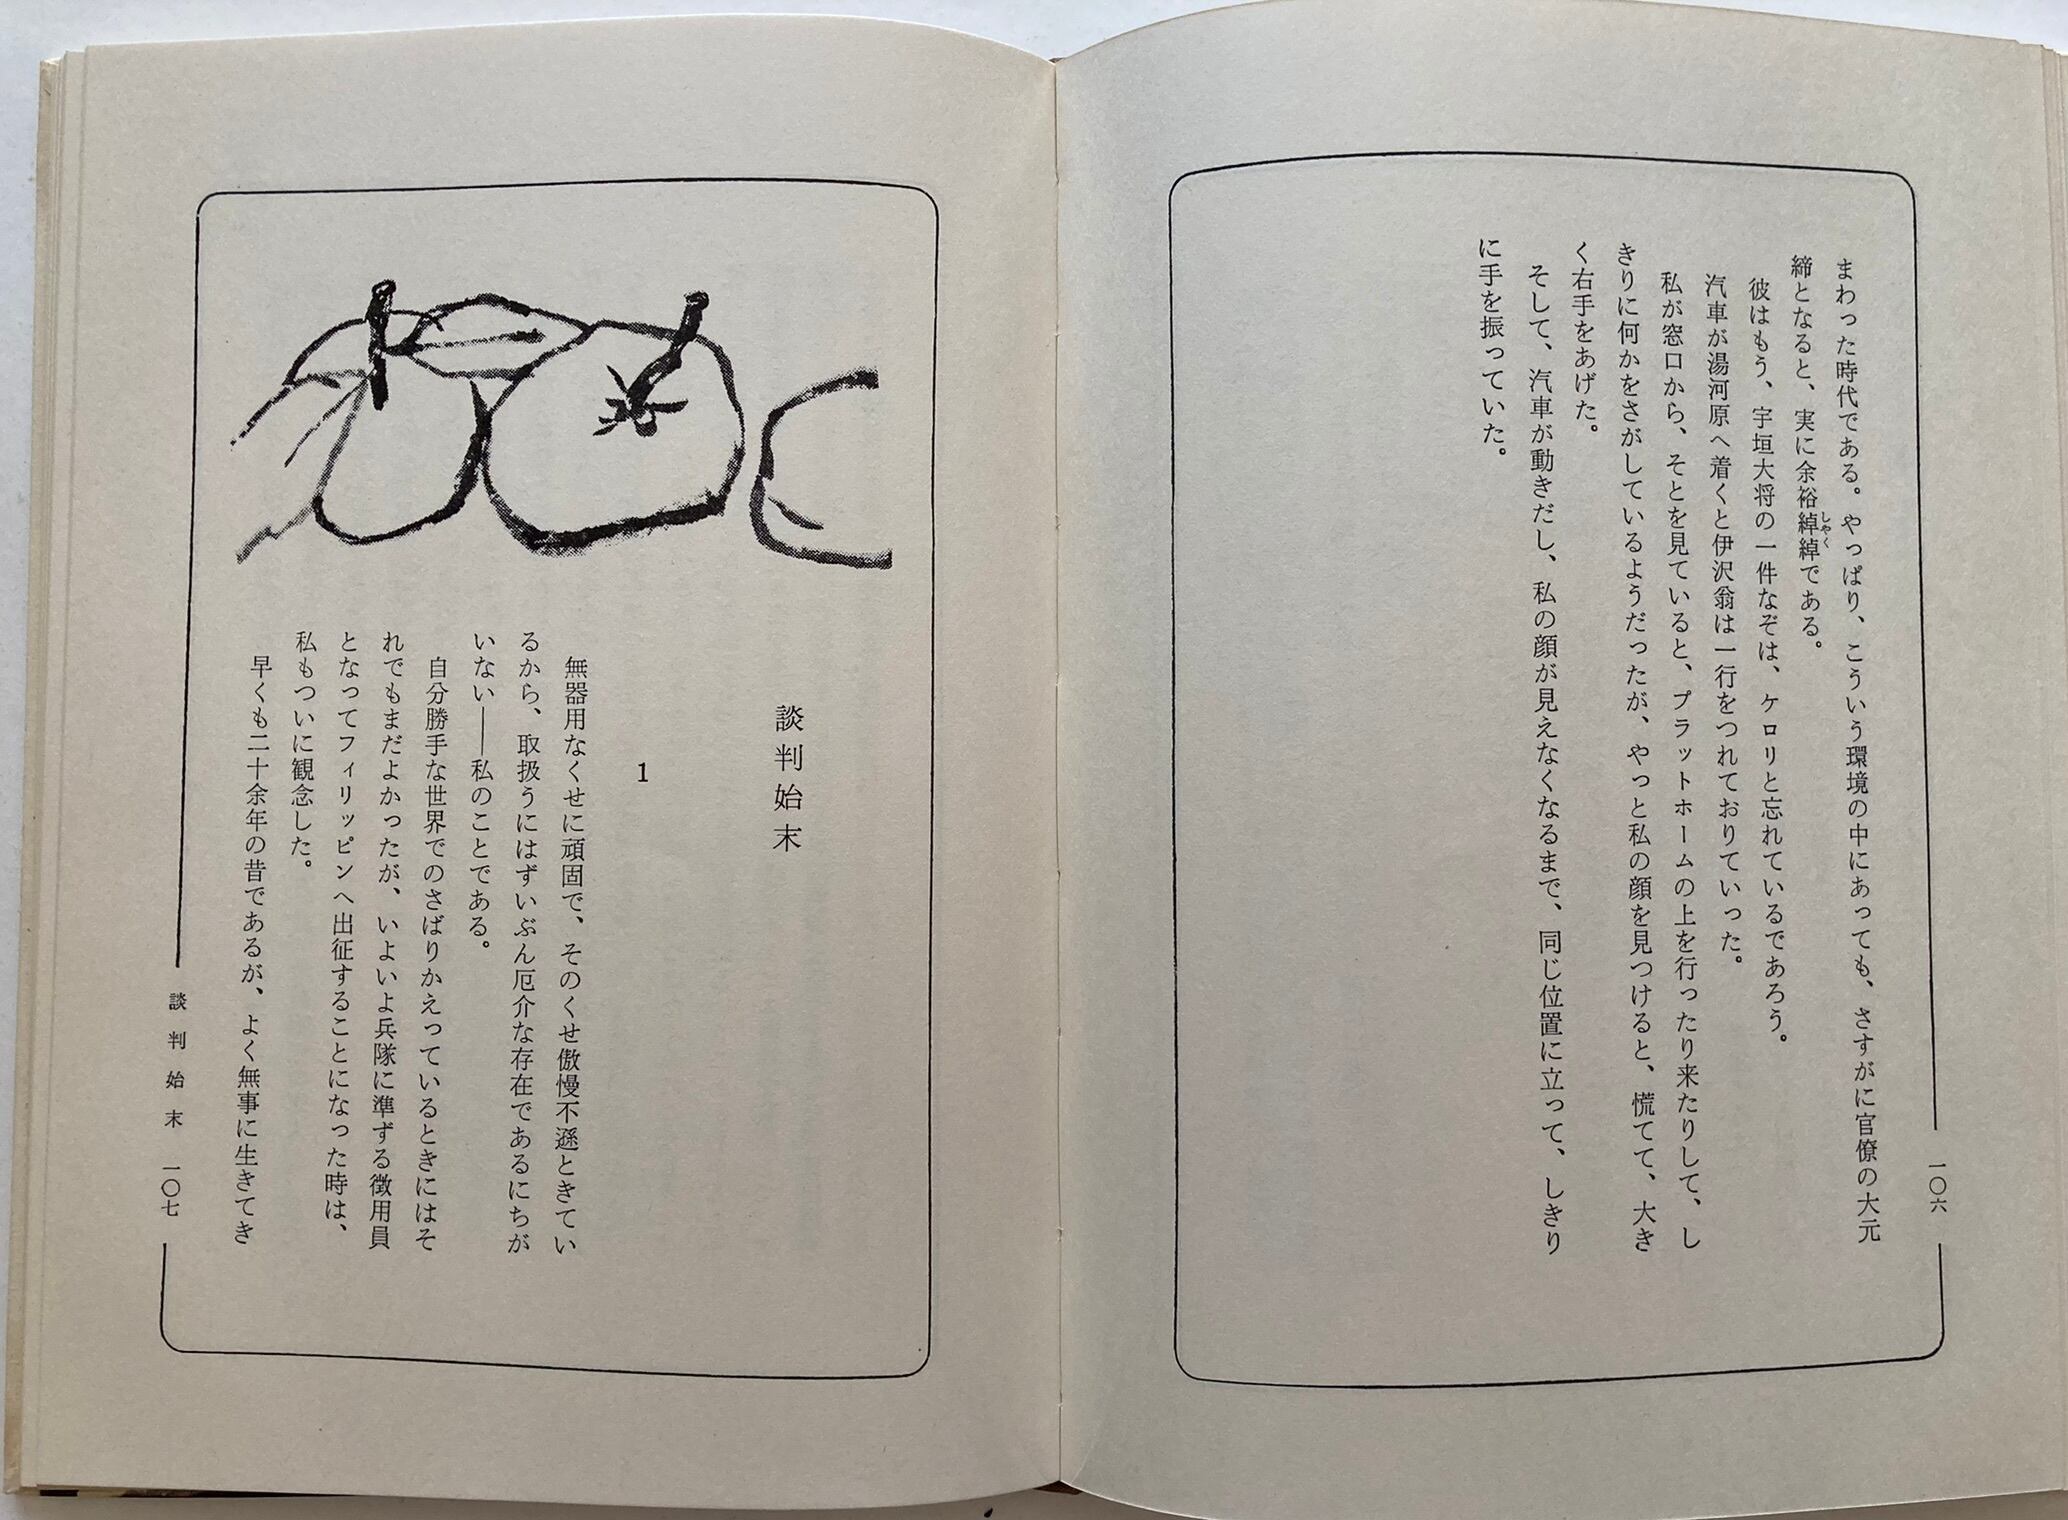 まわった時代である。やっぱり、こういう環境の中にあっても、さすがに官僚の大元
締となると、実に余裕綽綽である。
しやく
彼はもう、宇垣大将の一件なぞは、ケロリと忘れているであろう。
汽車が湯河原へ着くと伊沢翁は一行をつれておりていった。
私が窓口から、そとを見ていると、プラットホームの上を行ったり来たりして、し
きりに何かをさがしているようだったが、やっと私の顔を見つけると、慌てて、大き
く右手をあげた。
そして、汽車が動きだし、私の顔が見えなくなるまで、同じ位置に立って、しきり
に手を振っていた。
一〇六
談判始末
1
無器用なくせに頑固で、そのくせ傲慢不遜ときてい
るから、取扱うにはずいぶん厄介な存在であるにちが
いない――私のことである。
自分勝手な世界でのさばりかえっているときにはそ
れでもまだよかったが、いよいよ兵隊に準ずる徴用員
となってフィリッピンへ出征することになった時は、
私もついに観念した。
早くも二十余年の昔であるが、よく無事に生きてき
談判始末 一〇七